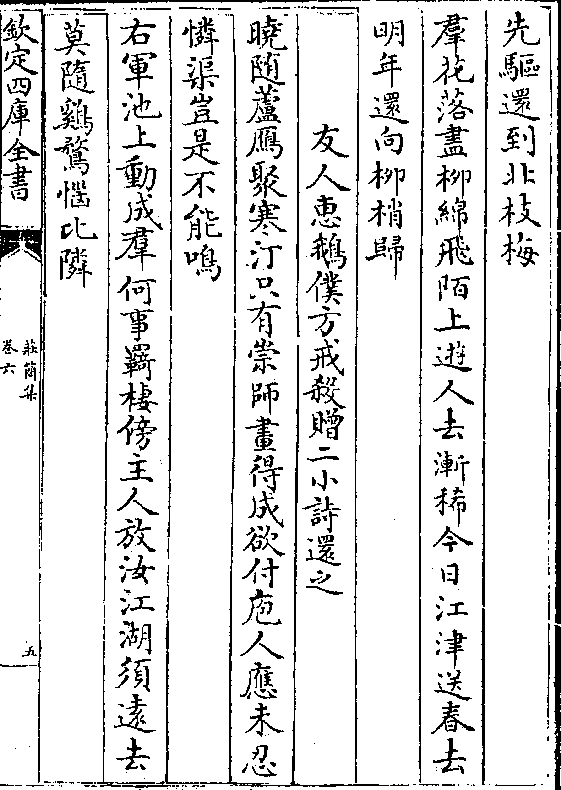 先驅還到北枝梅
羣花落盡柳綿飛陌上遊人去漸稀今日江津送春去
明年還向柳梢歸
友人惠鵝僕方戒殺贈二小詩還之
曉隨蘆鴈聚寒汀只有崇師畫得成欲付庖人應未忍
憐渠豈是不能鳴
右軍池上動成羣何事羇棲傍主人放汝江湖須遠去
莫隨鷄鶩惱比隣
欽定四庫全書
莊簡集
卷六
五